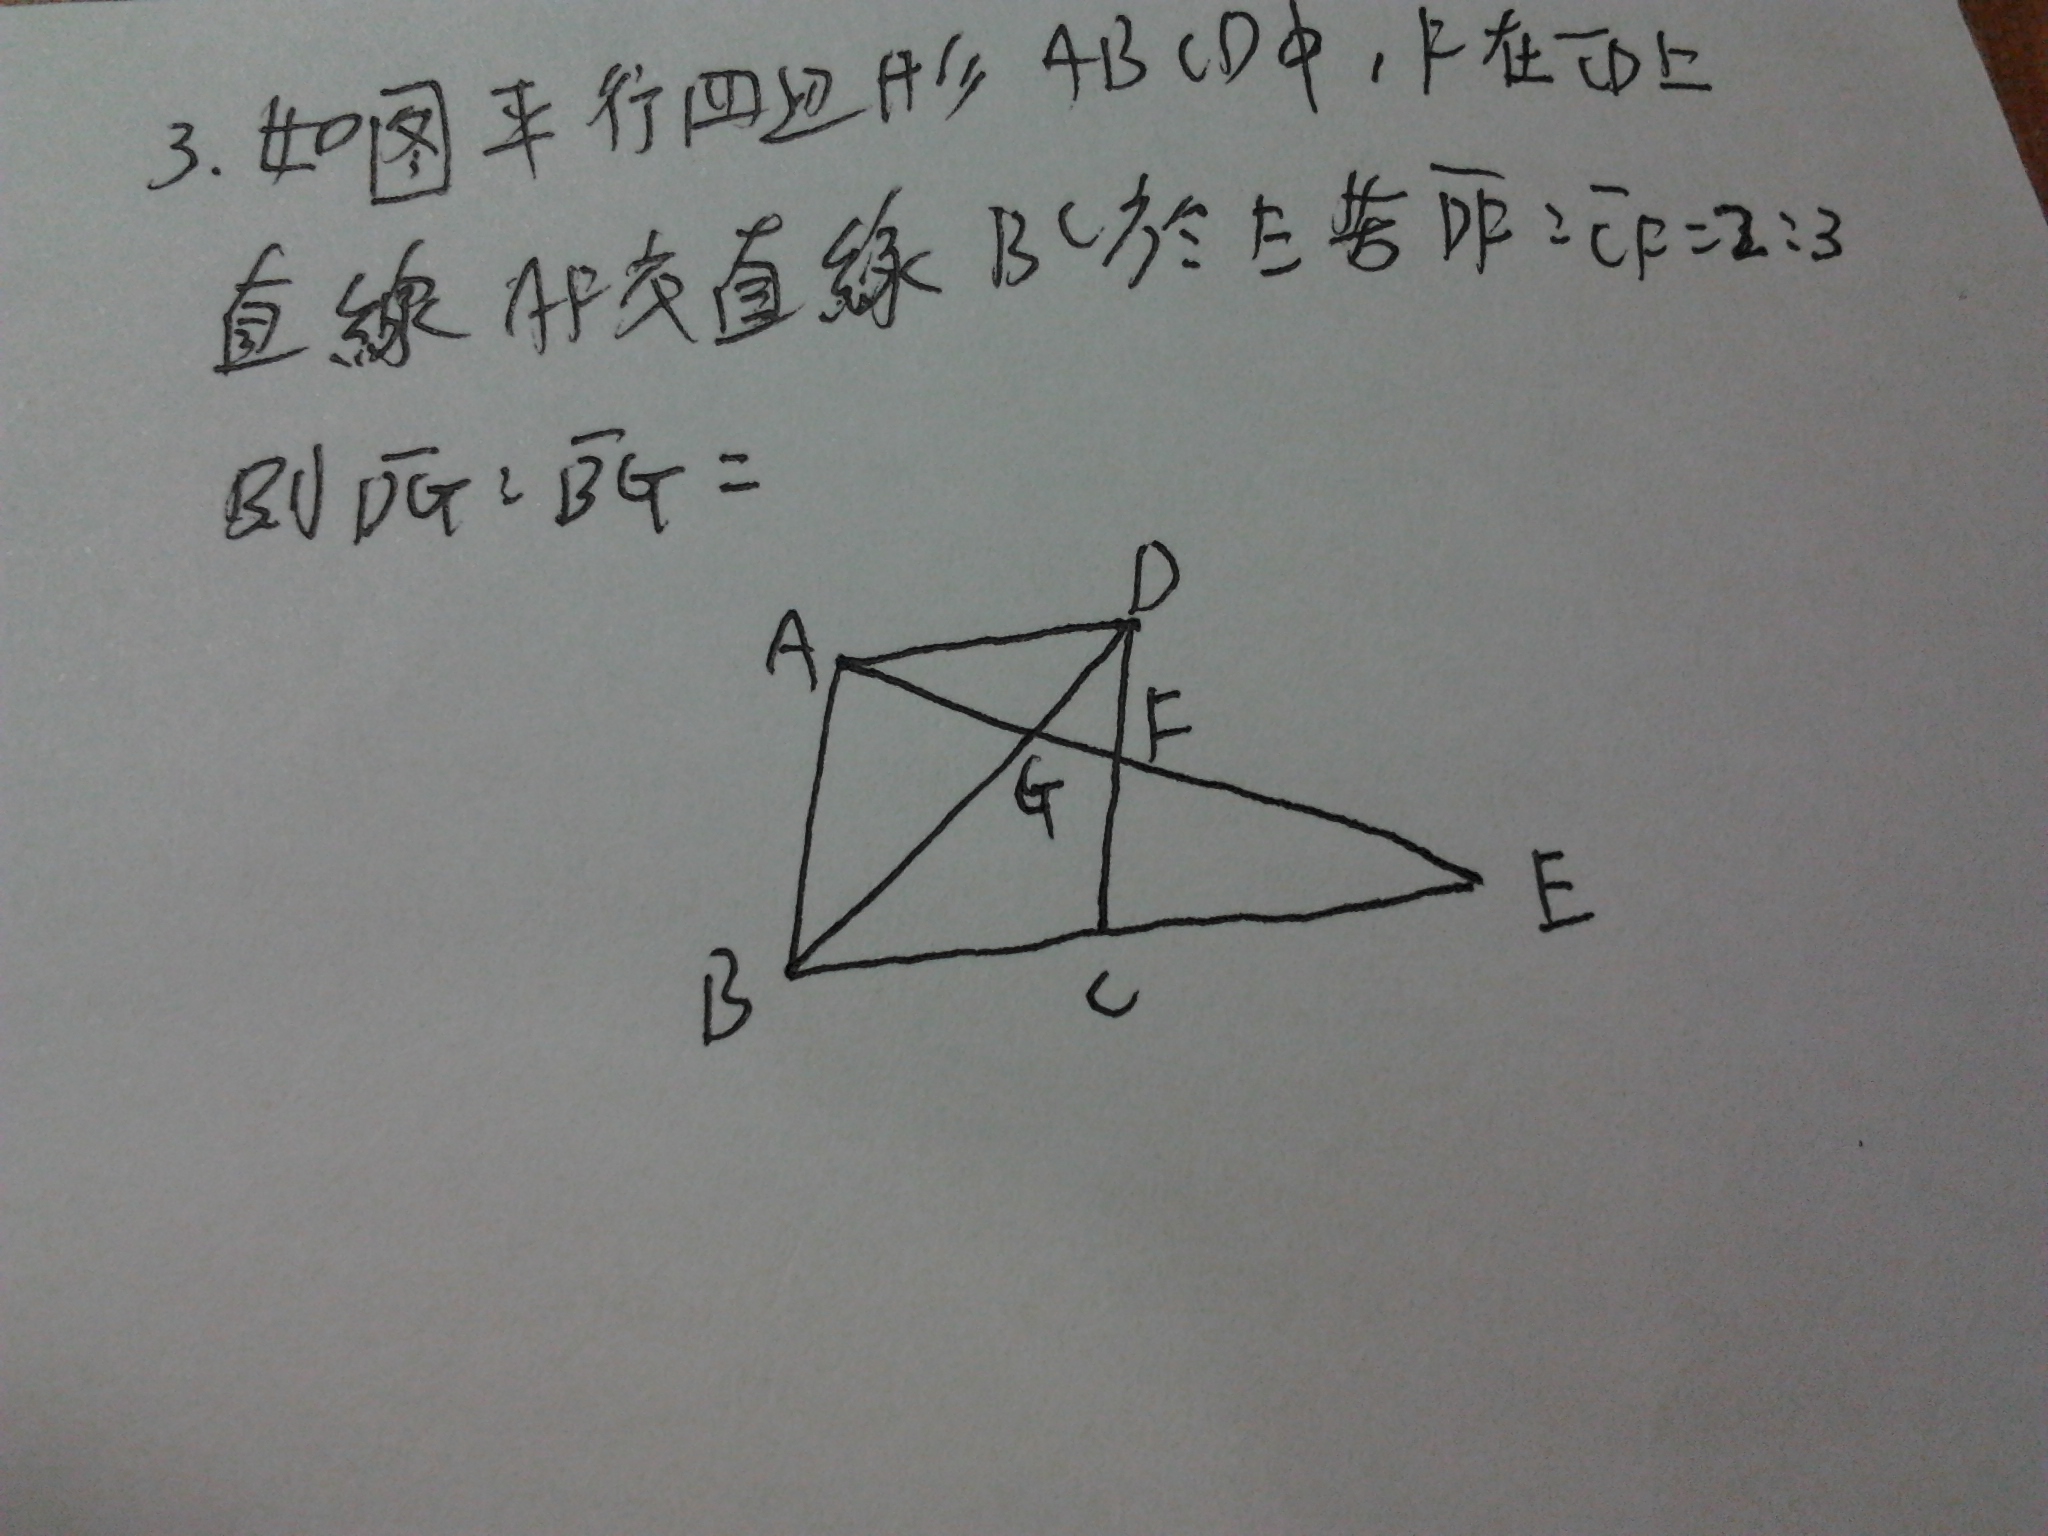 3. 如图平行四边形ABCD中，F在C̅D̅上
直線AF交直線BC於E若D̅F̅:C̅F̅=2:3
則D̅G̅:B̅G̅=
A
D
F
G
E
B
C